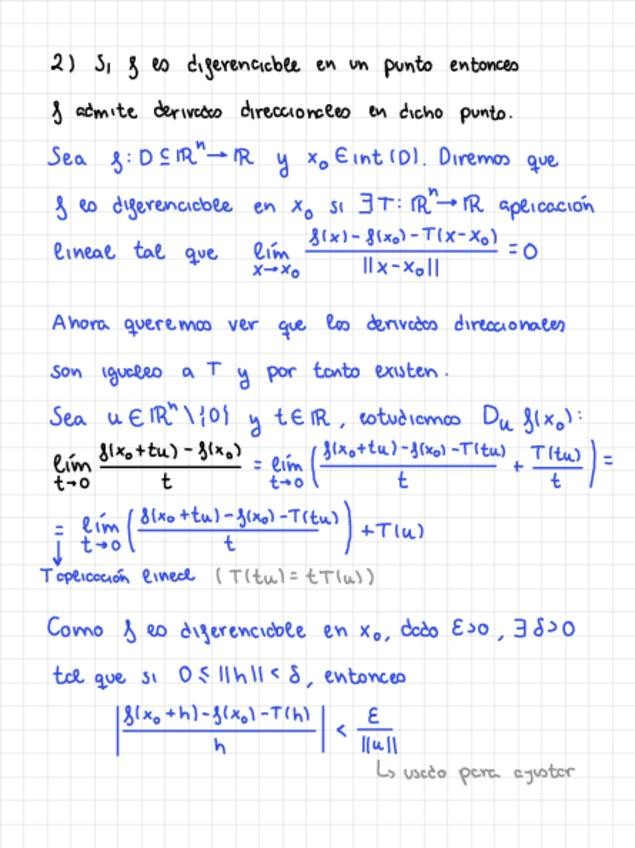 2) Si f es diferenciable en un punto entonces
f admite derivadas direccionales en dicho punto.
Sea f: D ⊆ ℝⁿ → ℝ y x₀ ∈ int(D). Diremos que
f es diferenciable en x₀ si ∃ T: ℝⁿ → ℝ aplicación
lineal tal que lím_{x→x₀} (f(x) - f(x₀) - T(x-x₀)) / ||x-x₀|| = 0
Ahora queremos ver que las derivadas direccionales
son iguales a T y por tanto existen.
Sea u ∈ ℝⁿ \ {0} y t ∈ ℝ, estudiamos D_u f(x₀):
lím_{t→0} (f(x₀+tu) - f(x₀)) / t = lím_{t→0} ( (f(x₀+tu) - f(x₀) - T(tu)) / t + T(tu) / t ) =
= lím_{t→0} ( (f(x₀+tu) - f(x₀) - T(tu)) / t ) + T(u)
↓
T aplicación lineal (T(tu) = tT(u))
Como f es diferenciable en x₀, dado ε>0, ∃ δ>0
tal que si 0 ≤ ||h|| < δ, entonces
| (f(x₀+h) - f(x₀) - T(h)) / h | < ε / ||u||
↳ usado para ajustar